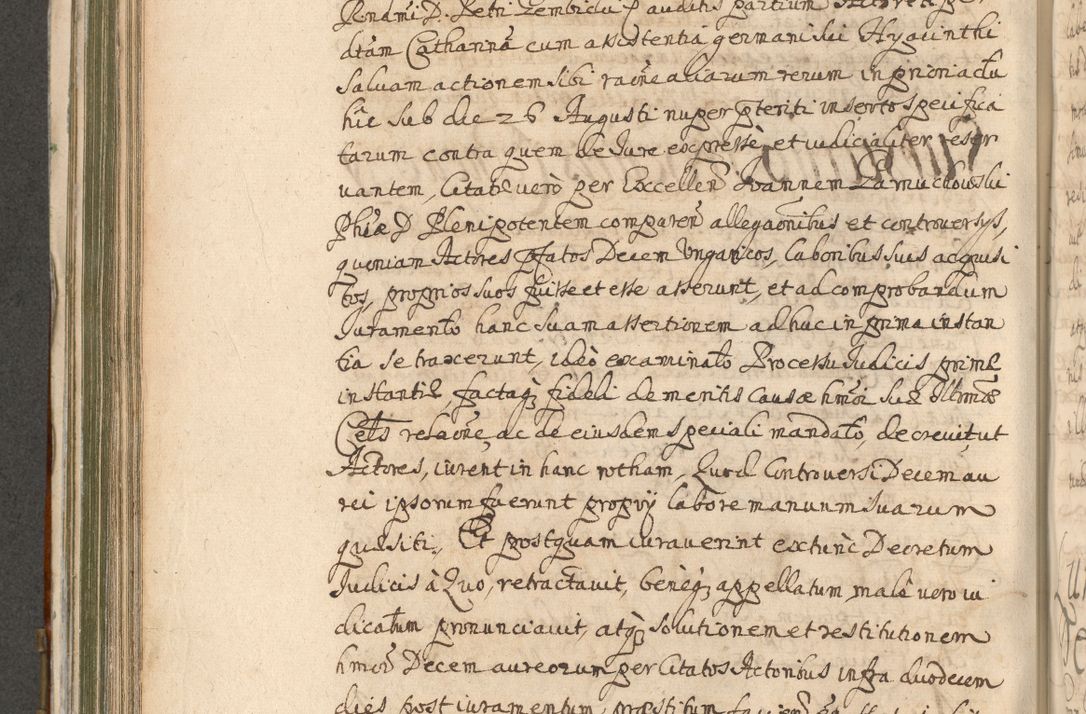 Rndmi D. Petri Zembicki P auditis partium
dtam Catharinã cum assistentia germani sui Hyacinthi
Saluam actionem sibi raõne aliarum rerum in priori actu
hic sub die 26 Augusti nuper pteriti inserto specifica
tarum contra quem de Jure expresse et iudicialiter reser
uantem, Citatõ verò per Excellen Joannem Zamuchowski
Phiæ D Plenipotentem comparen allegaõnibus et controuersys,
quoniam Actores pfatos Decem Vngaricos, laboribus suis acquisi
tos, proprios suos fuisse et esse asserunt, et ad comprobandum
Juramento hanc suam assertionem adhuc in prima instan
tia se traxerunt, ideò examinato Processu Judicis primæ
instantiæ, factaq fideli de meritis causæ hmoi suæ Illmæ
Cels relaõne, ac de eiusdem speciali mandato, decreuit, ut
Actores, iurent in hanc rotham, Quod Controuersi Decem au
rei ipsorum fuerunt proprij labore manuum suarum
quæsiti., Et postquam iurauerint extunc Decretum
Judicis à Quo, retractauit, beneq appellatum malè vero iu
dicatum pronunciauit, atq solutionem et restitutionem
hmoi Decem aureorum per Citatos Actoribus infra duodecem
dies post iuramentum, præstitum